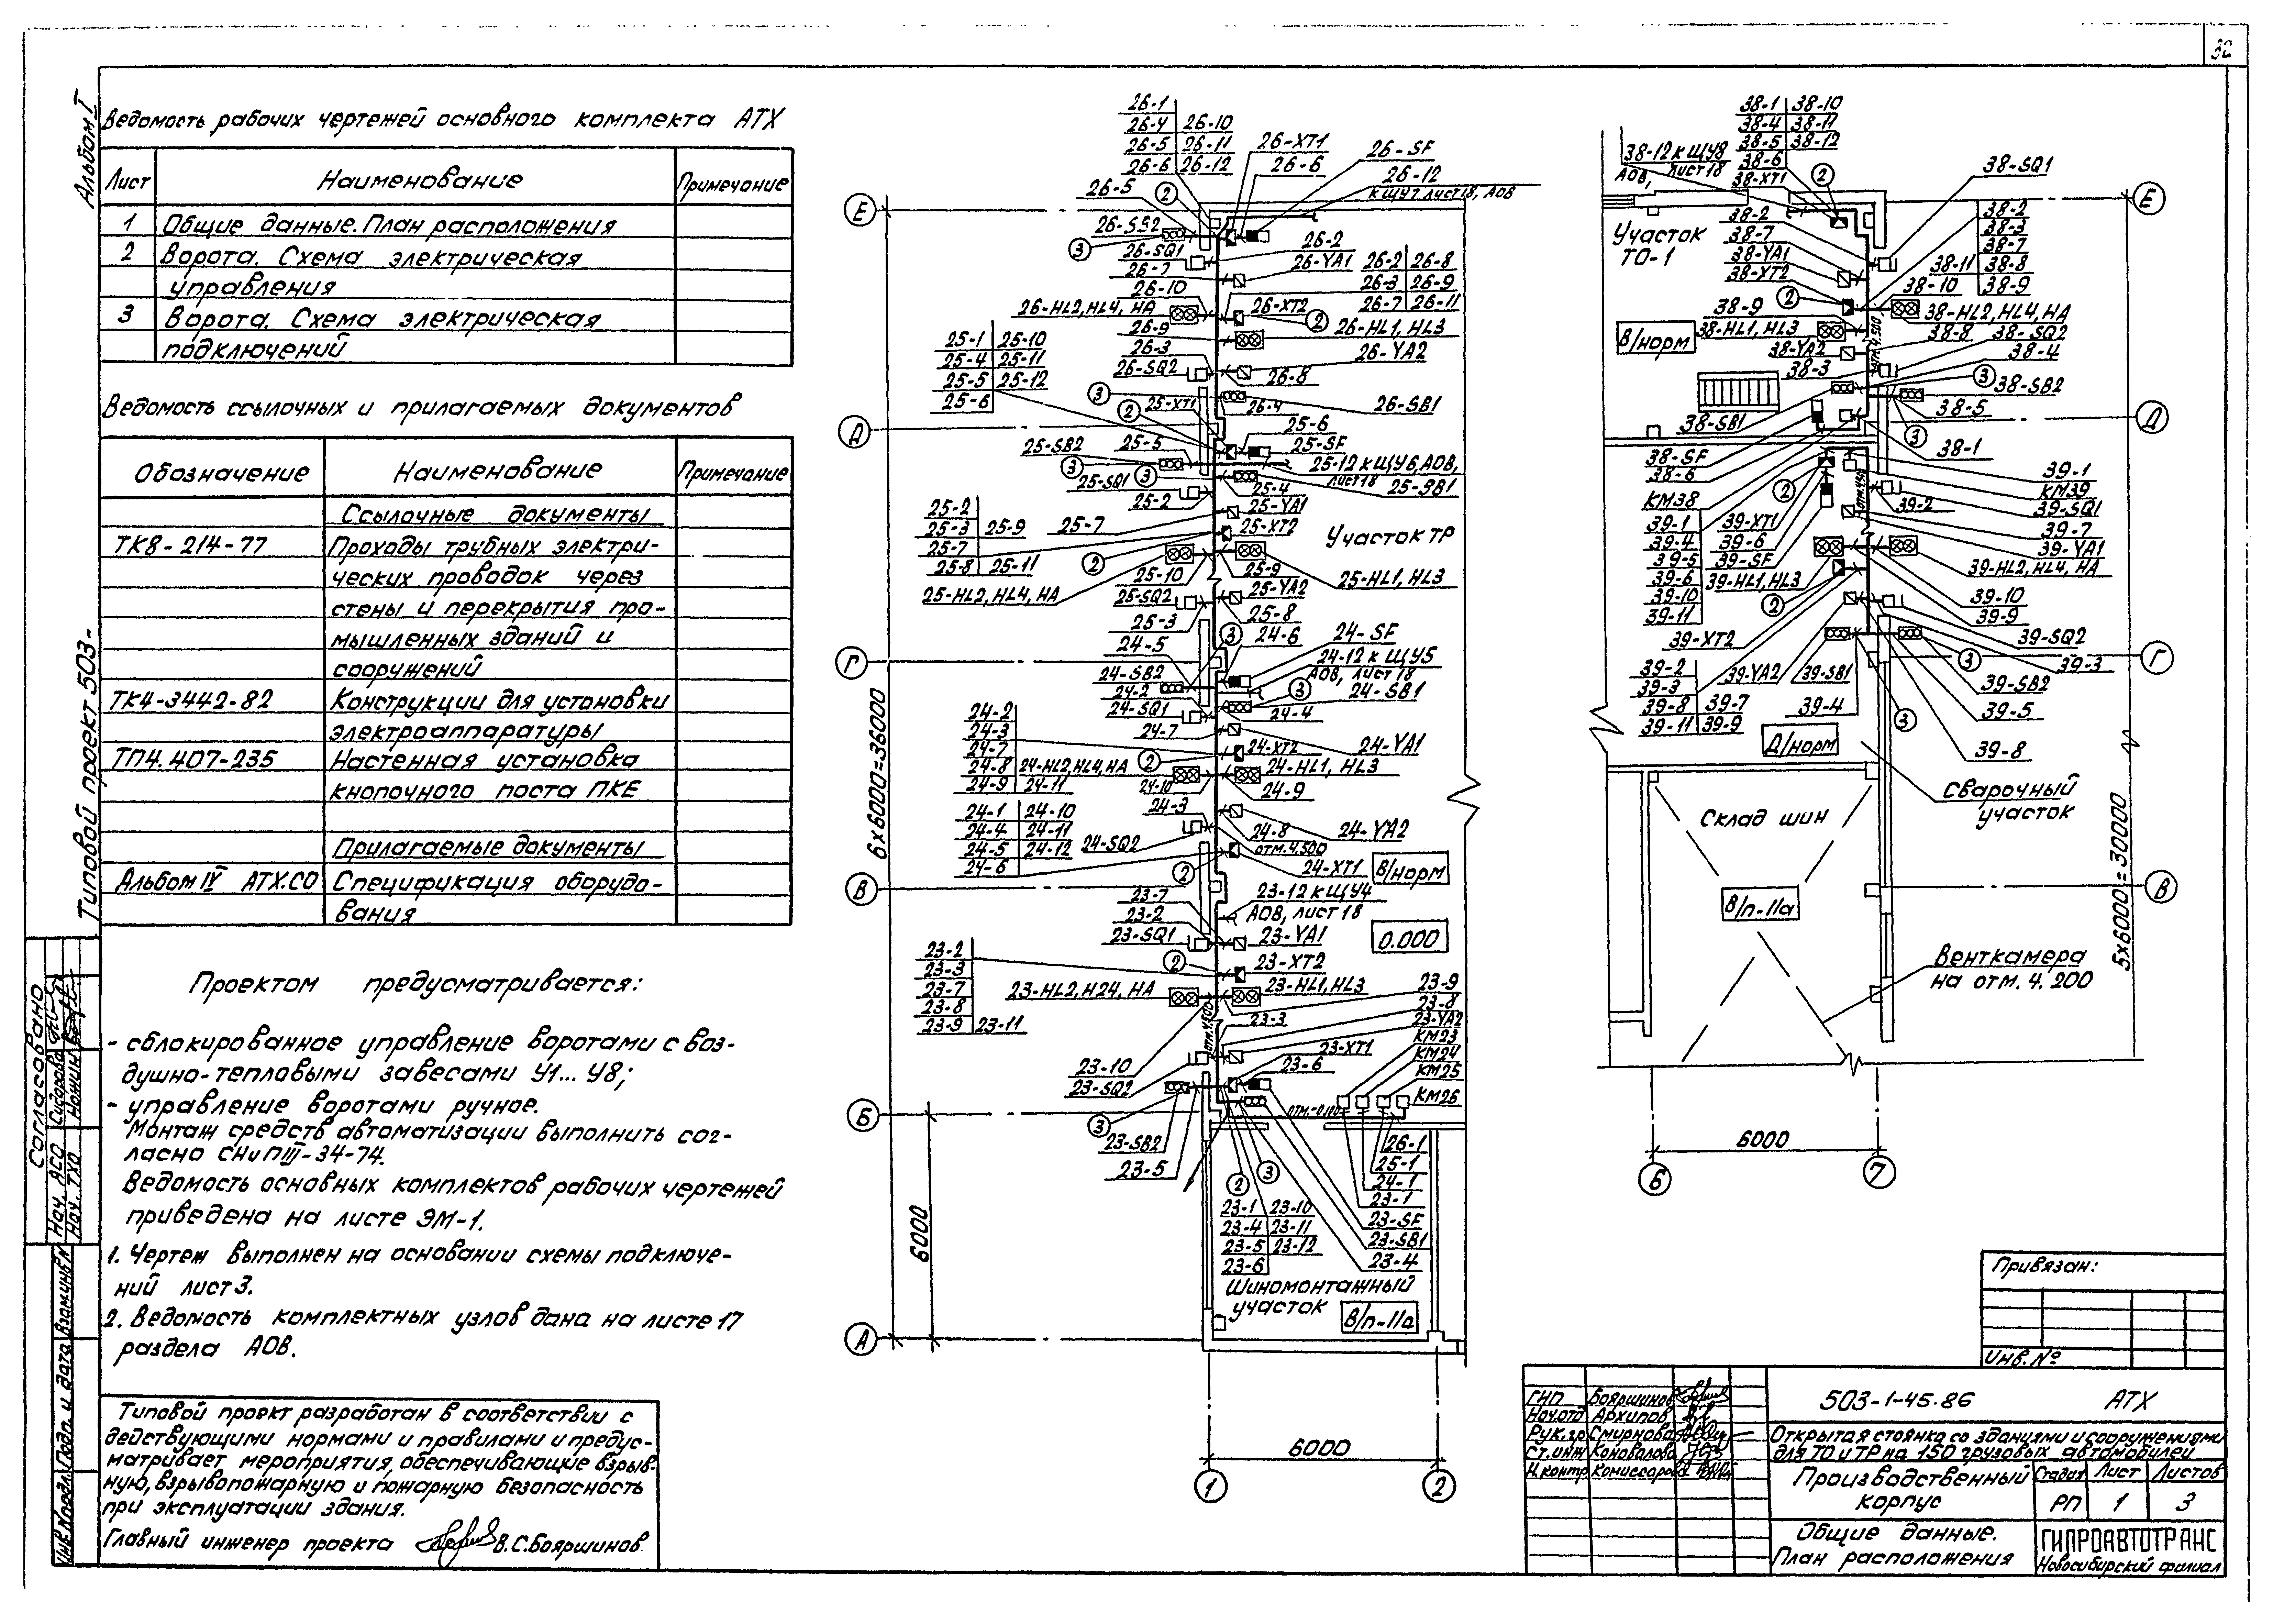 32
Альбом I
Типовой проект 503-
Ведомость рабочих чертежей основного комплекта АТХ
Лист Наименование Примечание
1 Общие данные. План расположения
2 Ворота. Схема электрическая
управления
3 Ворота. Схема электрическая
подключений
Ведомость ссылочных и прилагаемых документов
Обозначение Наименование Примечание
Ссылочные документы
ТК8-214-77 Проходы трубных электри-
ческих проводок через
стены и перекрытия про-
мышленных зданий и
сооружений
ТК4-3442-82 Конструкции для установки
электроаппаратуры
ТП4.407-235 Настенная установка
кнопочного поста ПКЕ
Прилагаемые документы
Альбом IV АТХ.СО Спецификация оборудо-
вания
Проектом предусматривается:
- сблокированное управление воротами с воз-
душно-тепловыми завесами У1... У8;
- управление воротами ручное.
Монтаж средств автоматизации выполнить сог-
ласно СНиПIII-34-74.
Ведомость основных комплектов рабочих чертежей
приведена на листе ЭМ-1.
1. Чертеж выполнен на основании схемы подключе-
ний лист 3.
2. Ведомость комплектных узлов дана на листе 17
раздела АОВ.
Типовой проект разработан в соответствии с
действующими нормами и правилами и предус-
матривает мероприятия, обеспечивающие взрыв-
ную, взрывопожарную и пожарную безопасность
при эксплуатации здания.
Главный инженер проекта В.С.Бояршинов
Согласовано
Нач. АСО Сидорова
Нач. ТХО Ножкин
Инв.№подл. Подп. и дата Взам.инв.№
26-1
26-4 26-10
26-5 26-11
26-6 26-12
26-XT1
26-6
26-SF
26-12
к ЩУ7 лист 18, АОВ
26-5
2
Е
26-SB2
3
26-SQ1
26-2
26-7
26-YA1
26-2 26-8
26-3 26-9
26-7 26-11
26-10
26-HL2, HL4, НА
26-XT2
2
26-9
26-HL1, HL3
26-3
26-YA2
26-SQ2
26-8
3
26-4
26-SB1
25-1 25-10
25-4 25-11
25-5 25-12
25-6
2
25-XT1
Д
25-6
25-SF
25-SB2
25-5
3
3
25-12 к ЩУ6, АОВ,
лист 18
25-SQ1
25-4
25-SB1
25-2
25-YA1
25-2
25-3 25-9
25-7
25-8 25-11
25-7
25-XT2
Участок ТР
2
25-10
25-9
25-HL1, HL3
25-HL2, HL4, НА
25-SQ2
25-YA2
25-3
25-8
3
24-5
24-6
24-SF
Г
24-12 к ЩУ5
АОВ, лист 18
24-SB2
3
24-2
24-SB1
24-SQ1
24-4
24-7
24-YA1
24-2
24-3
24-7
24-8
24-9 24-11
24-XT2
2
24-HL2, HL4, НА
24-HL1, HL3
24-10
24-9
24-3
24-1 24-10
24-4 24-11
24-5 24-12
24-6
24-SQ2
24-8
отм. 4.500
24-YA2
2
24-XT1
В/норм
В
23-7
23-12 к ЩУ4
АОВ, лист 18
23-2
23-SQ1
23-YA1
0.000
23-2
23-3
23-7
23-8
23-9 23-11
2
23-XT2
23-HL2, Н24, НА
23-HL1, HL3
23-9
23-8
23-YA2
отм. 4.500
23-3
23-10
23-XT1
23-6
КМ23
КМ24
КМ25
КМ26
23-SQ2
Б
3
23-SB2
23-5
2
3
26-1
25-1
24-1
23-1
23-SF
23-SB1
23-4
23-1 23-10
23-4 23-11
23-5 23-12
23-6
Шиномонтажный
участок
В/п-IIа
А
6×6000=36000
6000
6000
1
2
38-1 38-10
38-4 38-11
38-5 38-12
38-6
38-XT1
38-12 к ЩУ8
АОВ, лист 18
2
38-SQ1
Е
Участок
ТО-1
38-2
38-7
38-YA1
38-XT2
38-2
38-3
38-7
38-8
38-9
38-11
38-10
2
38-9
38-HL1, HL3
38-HL2, HL4, НА
38-8
38-SQ2
38-4
В/норм
отм. 4.500
38-YA2
38-3
3
38-SB2
38-5
Д
38-SB1
3
38-SF
38-6
38-1
КМ38
2
39-1
КМ39
39-2
39-SQ1
39-7
39-YA1
39-1
39-4
39-5
39-6
39-10
39-11
39-XT1
39-6
39-SF
39-HL1, HL3
39-HL2, HL4, НА
2
39-10
39-9
39-XT2
39-SQ2
3
39-3
Г
39-2
39-3
39-8 39-7
39-11 39-9
39-YA2
39-SB1
39-SB2
39-4
39-5
3
39-8
Д/норм
Сварочный
участок
Склад шин
В/п-IIа
В
Венткамера
на отм. 4.200
5×6000=30000
6000
6
7
Привязан:
Инв. №
ГИП Бояршинов
Нач.отд Архипов
Рук.гр. Смирнова
Ст.инж Коновалова
Н.контр Комиссарова
503-1-45.86 АТХ
Открытая стоянка со зданиями и сооружениями
для ТО и ТР на 150 грузовых автомобилей
Производственный
корпус
Стадия Лист Листов
РП 1 3
Общие данные.
План расположения
ГИПРОАВТОТРАНС
Новосибирский филиал